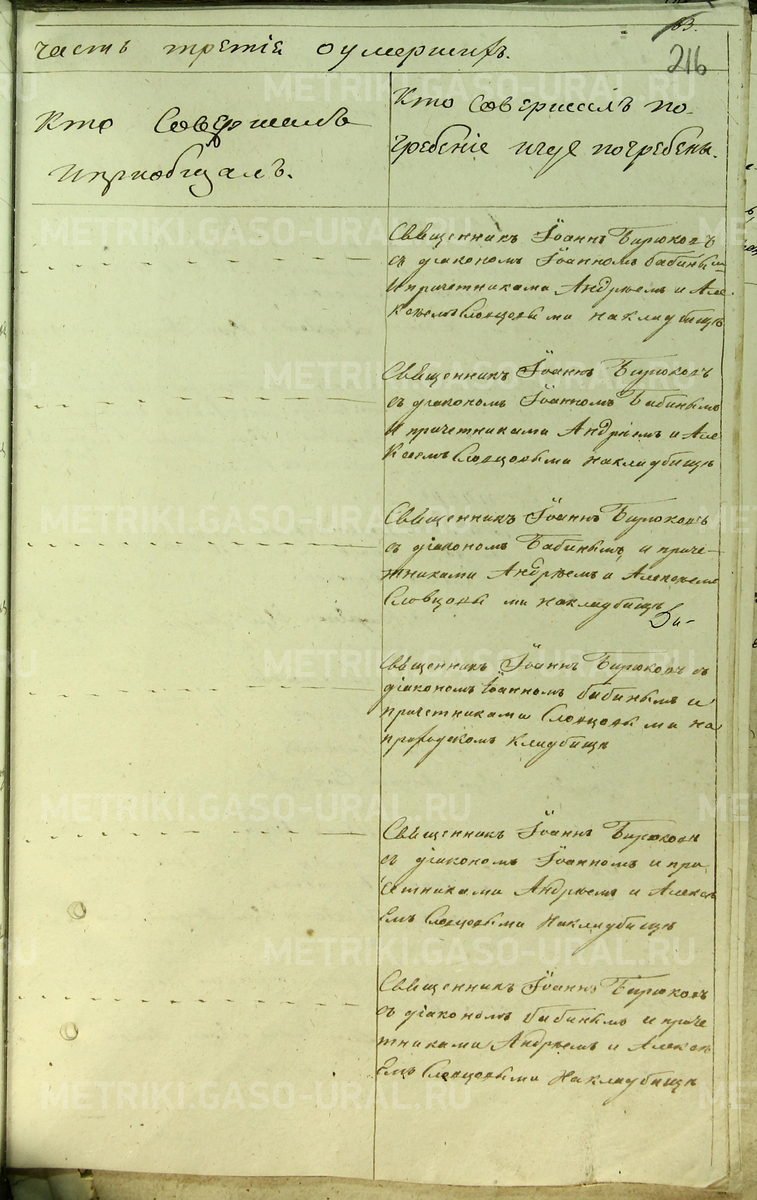 83.
216
часть третія оумершихъ.
Кто Совершалъ
Ипріобщалъ.
Кто совершалъ по-
гребеніе игде погребены.
Священникъ Іоаннъ Бирюковъ
съ діакономъ Іоанномъ Бабинымъ
Ипричетниками Андрѣемъ и Але
Ксѣемъ Словцовыми накладбищѣ
Священникъ Іоаннъ Бирюковъ
съ діакономъ Іоанномъ Бабинымъ
И причетниками Андріемъ и Але
Ксеемъ Словцовыми накладбищѣ
Священникъ Іоаннъ Бирюковъ
съ діакономъ Бабинымъ и приче-
тниками Андрѣемъ и Алексѣемъ
Словцовы ми накладбищѣ
Священникъ Іоаннъ Бирюковъ съ
діакономъ Іоанномъ Бабинымъ и
причетниками Словцовы ми на
приходскомъ кладбищѣ
Священникъ Іоаннъ Бирюковъ
съ діакономъ Іоанномъ и при
четниками Андрѣемъ и Алексѣ
Емъ Словцовыми Накладбищѣ
Священникъ Іоаннъ Бирюковъ
съ діакономъ Бабинымъ и приче
тниками Андрѣемъ и Алексѣ
Емъ Словцовыми Накладбищѣ
METRIKI.GASO-URAL.RU